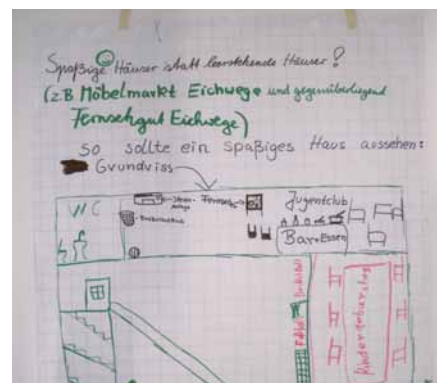 Spaßige Häuser statt leerstehende Häuser?
(z.B Möbelmarkt Eichwege und gegenüberliegend
Fernsehgut Eichwege)
So sollte ein spaßiges Haus aussehen:
Grundriss
WC
Stereo-
Anlage
Fernseh
Jugendclub
Basketballkorb
Bar+Essen
Kindergeburtstag